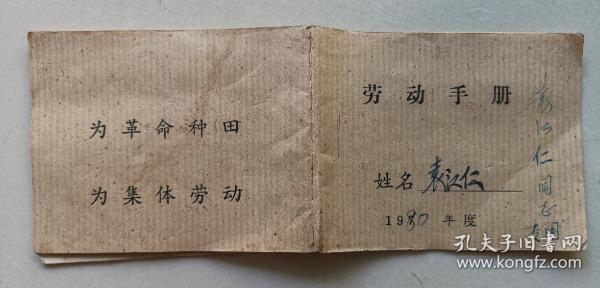 为革命种田
为集体劳动
劳动手册
姓名 袁江仁
1980年度
袁江仁同志专用
孔夫子旧书网
www.kongfz.com